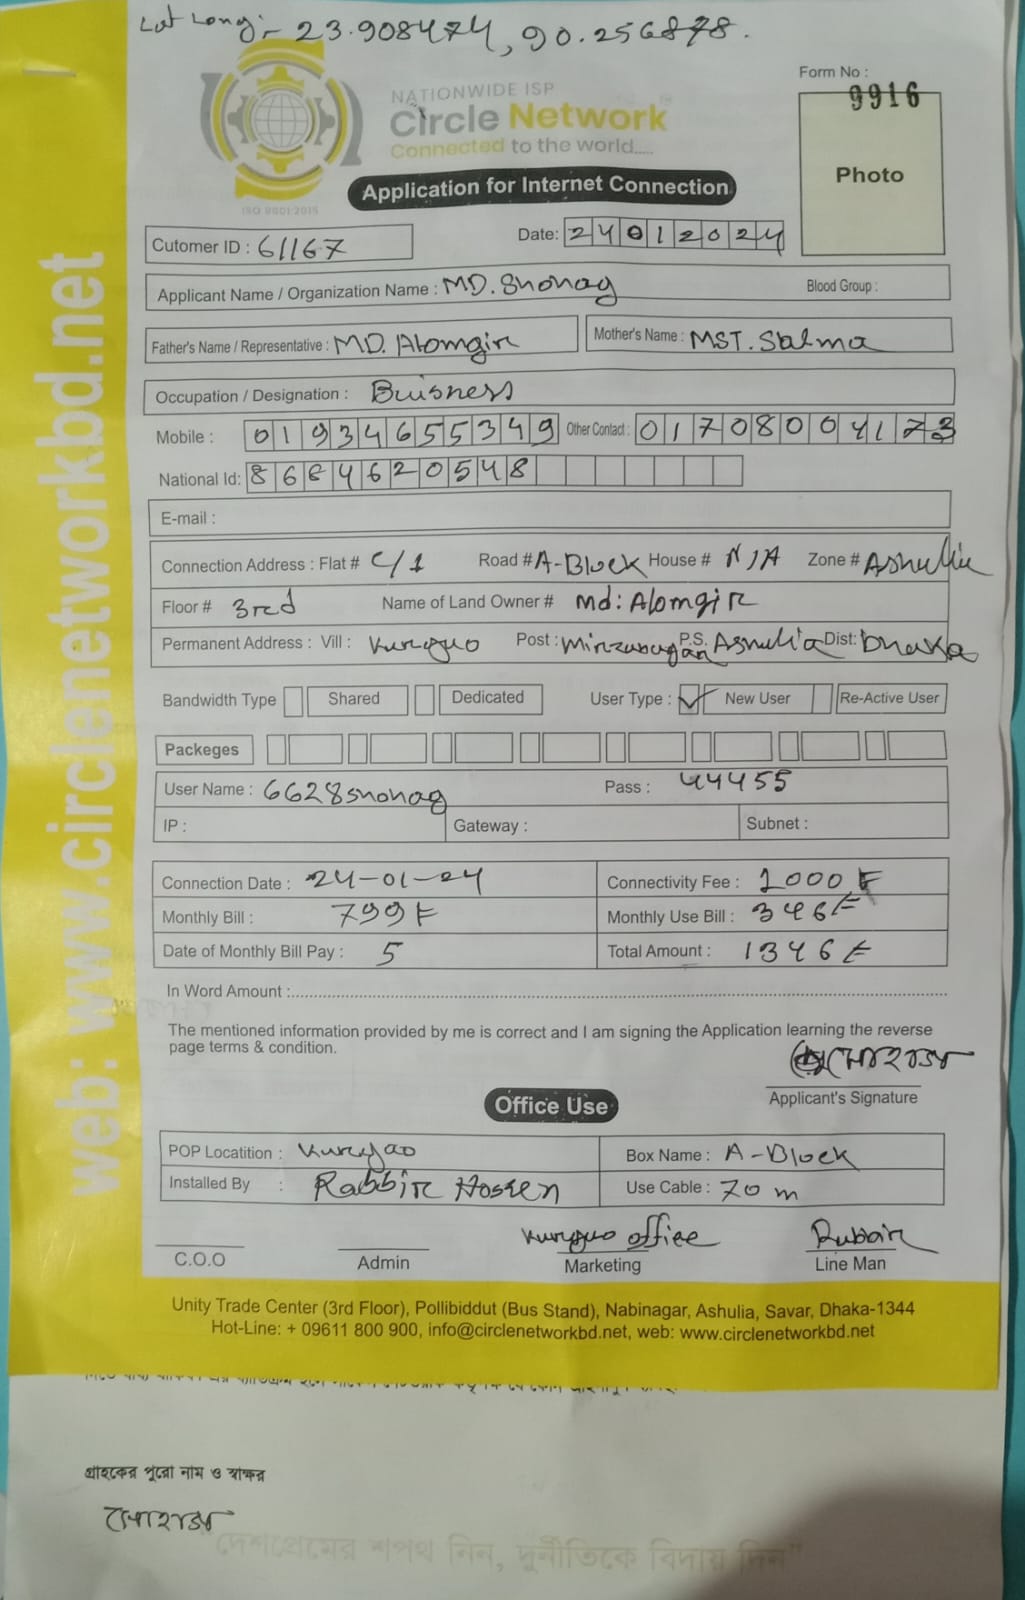 Lat Long:- 23.908474, 90.256878.
Form No :
9916
NATIONWIDE ISP
Circle Network
Connected to the world.....
Photo
Application for Internet Connection
ISO 9001:2015
Cutomer ID : 61167
Date: 24012024
Applicant Name / Organization Name : MD. Shohag
Blood Group :
Father's Name / Representative : MD. Alomgir
Mother's Name : MST. Salma
Occupation / Designation : Buisness
Mobile : 01934655349 Other Contact : 01708004173
National Id: 8664620548
E-mail :
Connection Address : Flat # C/1 Road # A-Block House # N/A Zone # Ashulia
Floor # 3rd Name of Land Owner # Md: Alomgir
Permanent Address : Vill : Post : P.S. Ashulia Dist: Dhaka
Bandwidth Type Shared Dedicated User Type : ✓ New User Re-Active User
Packeges
User Name : 6628shohag Pass : 44455
IP : Gateway : Subnet :
Connection Date : 24-01-24 Connectivity Fee : 1000
Monthly Bill : 799 Monthly Use Bill : 346
Date of Monthly Bill Pay : 5 Total Amount : 1346
In Word Amount :
The mentioned information provided by me is correct and I am signing the Application learning the reverse
page terms & condition.
সোহাগ
Applicant's Signature
Office Use
POP Locatition : Box Name : A-Block
Installed By : Rabbir Hossen Use Cable : 70 m
office
C.O.O Admin Marketing Line Man
Unity Trade Center (3rd Floor), Pollibiddut (Bus Stand), Nabinagar, Ashulia, Savar, Dhaka-1344
Hot-Line: + 09611 800 900, info@circlenetworkbd.net, web: www.circlenetworkbd.net
web: www.circlenetworkbd.net
গ্রাহকের পুরো নাম ও স্বাক্ষর
সোহাগ
"দেশপ্রেমের শপথ নিন, দুর্নীতিকে বিদায় দিন"